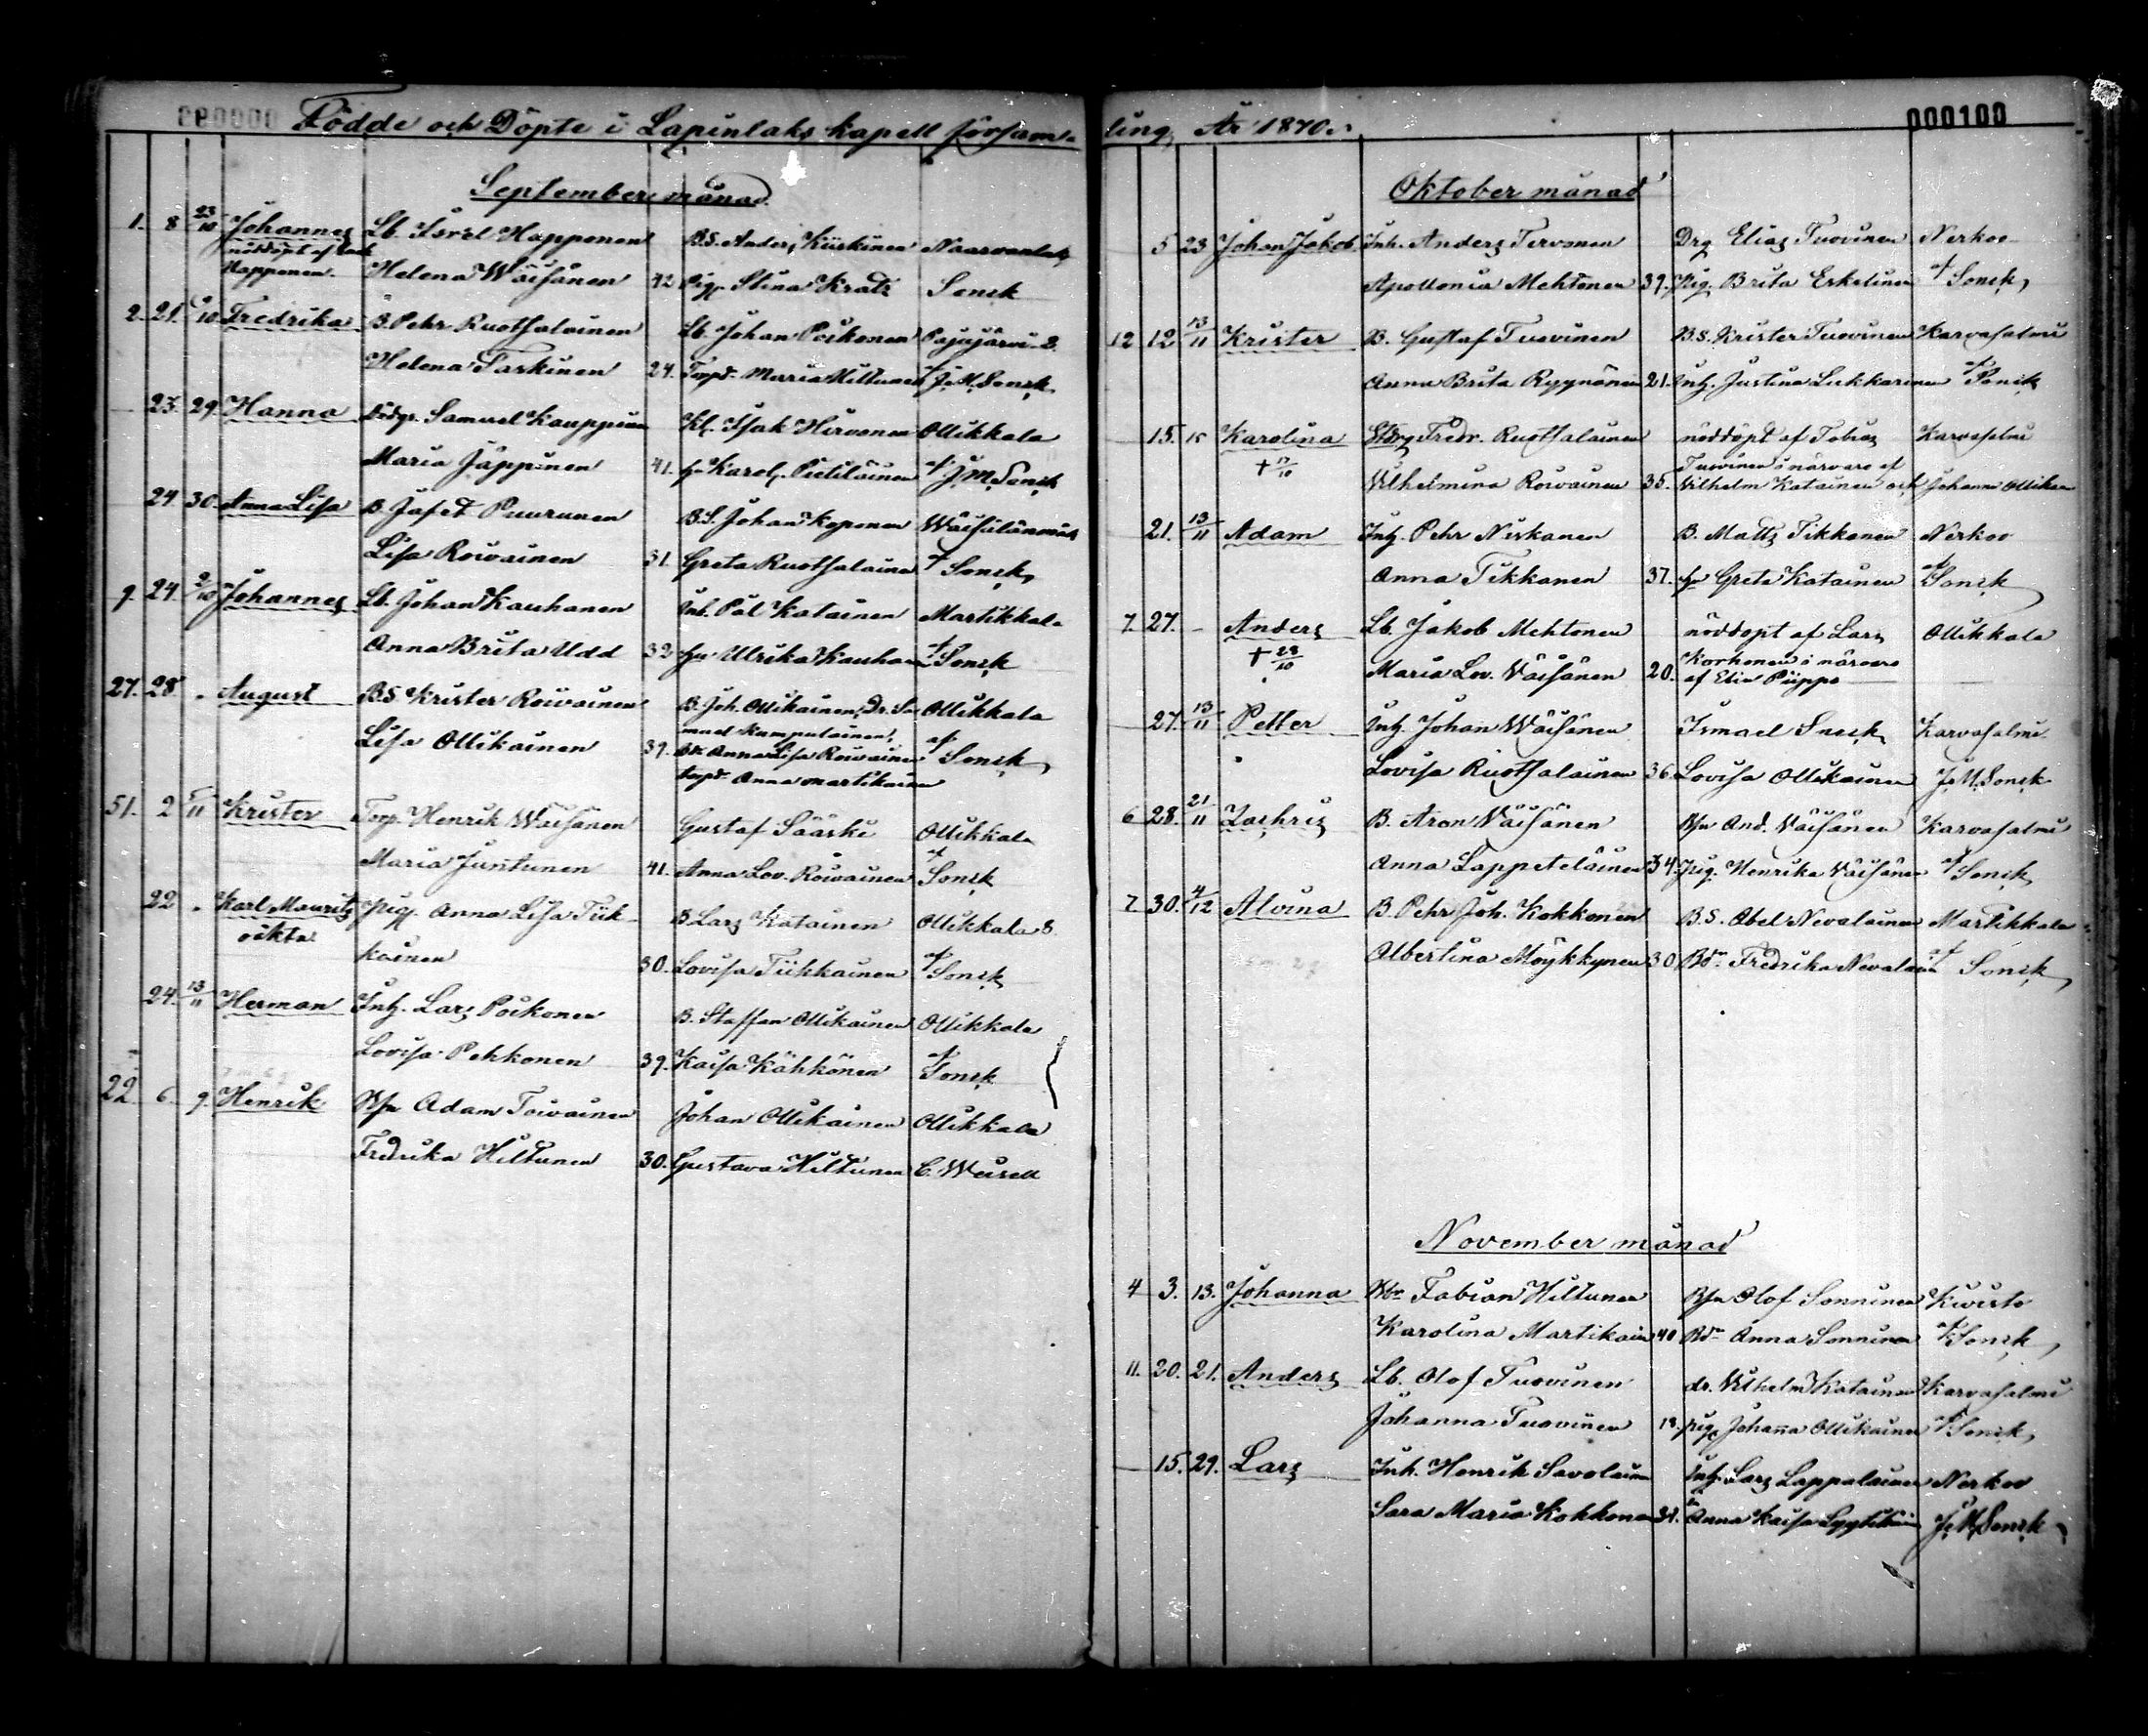 Födde och Döpte i Lapinlaks kapell försam-
September månad.
1. 8 23/10 Johannes Lb. Isrel Happonen B.S. Anders Kiiskinen Naarvanlaks
nöddöpt af
Happonen. Helena Wäisänen 42 Pig. Stina Kratz Sonck
2. 21. /10 Fredrika B. Pehr Ruotsalainen Lb. Johan Poikonen Pajujärvi 2.
Helena Tarkinen 24. Torpd. Maria Hiltunen J.M. Sonck
23. 29. Hanna Samuel Kauppinen Isak Hirvonen Ollikkala
Maria Jäppinen 41. hu Karol. Pietiläinen af J.M. Sonck
24 30. Anna Lisa B. Jafet Puurunen B.S. Johan Koponen Wäisälänmäk
Lisa Roivainen 31. Greta Ruotsalainen af Sonck
9. 24. 2/10 Johannes Lb. Johan Kauhanen Inh. Pål Katainen Martikkala
Anna Brita Udd 32 hu Ulrika Kauhanen af Sonck
27. 28. " August BS Krister Roivainen B. Joh. Ollikainen, Dr. Sa- Ollikkala
muel Kumpulainen,
Lisa Ollikainen 39. Anna Lisa Roivainen af Sonck
torpd. Anna Martikainen
51. 2 /11 Krister Torp. Henrik Wäisänen Gustaf Sääski Ollikkala
Maria Juntunen 41. Anna Lov. Roivainen af Sonck
22 " Karl Mauritz Pig. Anna Lisa Tiik- B. Lars Katainen Ollikkala 8.
oäkta kainen 30. Lovisa Tiikkainen af Sonck
24. 13/11 Herman Inh. Lars Poikonen B. Staffan Ollikainen Ollikkala
Lovisa Pehkonen 39. Kaisa Kähkönen af Sonck
22. 6. 9. Henrik Adam Toivainen Johan Ollikainen Ollikkala
Fredrika Hiltunen 30. Gustava Hiltunen C. Weisell
ling, År 1870.
000100
Oktober månad
5 23 Johan Jakob. Inh. Anders Tervonen Drg Elias Tuovinen Nerkoo
Apollonia Mehtonen 39. pig. Brita Eskelinen af Sonck
12 12 13/11 Krister B. Gustaf Tuovinen B.S. Krister Tuovinen Karvasalmi
Anna Brita Ryynänen 21. Inh. Justina Lukkarinen af Sonck
15. 15 Karolina Fredr. Ruotsalainen nöddöpt af Tobias Karvasalmi
† 17/10 Tuovinen i närvaro af
Vilhelmina Roivainen 35. Vilhelm Katainen och Johanna Ollikain
21. 13/11 Adam Inh. Pehr Niskanen B. Matts Tikkanen Nerkoo
Anna Tikkanen 37. hu Greta Katainen af Sonck
7. 27. - Anders Lb. Jakob Mehtonen nöddöpt af Lars Ollikkala
† 28/10 Maria Lov. Väisänen 20. Korhonen i närvaro
af Elin Piippo
27. 13/11 Petter Inh. Johan Wäisänen Ismael Karvasalmi
Lovisa Ruotsalainen 36. Lovisa Ollikainen J.M. Sonck
6 28. 21/11 Zachris B. Aron Väisänen And. Väisänen Karvasalmi
Anna Lappeteläinen 34. pig. Henrika Väisänen af Sonck
7. 30. 4/12 Alvina B. Pehr Joh. Kokkonen B.S. Abel Nevalainen Martikkala
Albertina Möykkynen 30. Fredrika Nevalain af Sonck
November månad
4 3. 13. Johanna Fabian Hiltunen Olof Sonninen Kivisto
Karolina Martikain 40 Anna Sonninen af Sonck
11. 20. 21. Anders Lb. Olof Tuovinen dr. Vilhelm Katainen Karvasalmi
Johanna Tuovinen 18. pig. Johanna Ollikainen af Sonck
15. 29. Lars Inh. Henrik Savolain Inh. Lars Lappalainen Nerkoo
Sara Maria Kokkonen 31. Anna Kaisa Lyytikäin J.M. Sonck